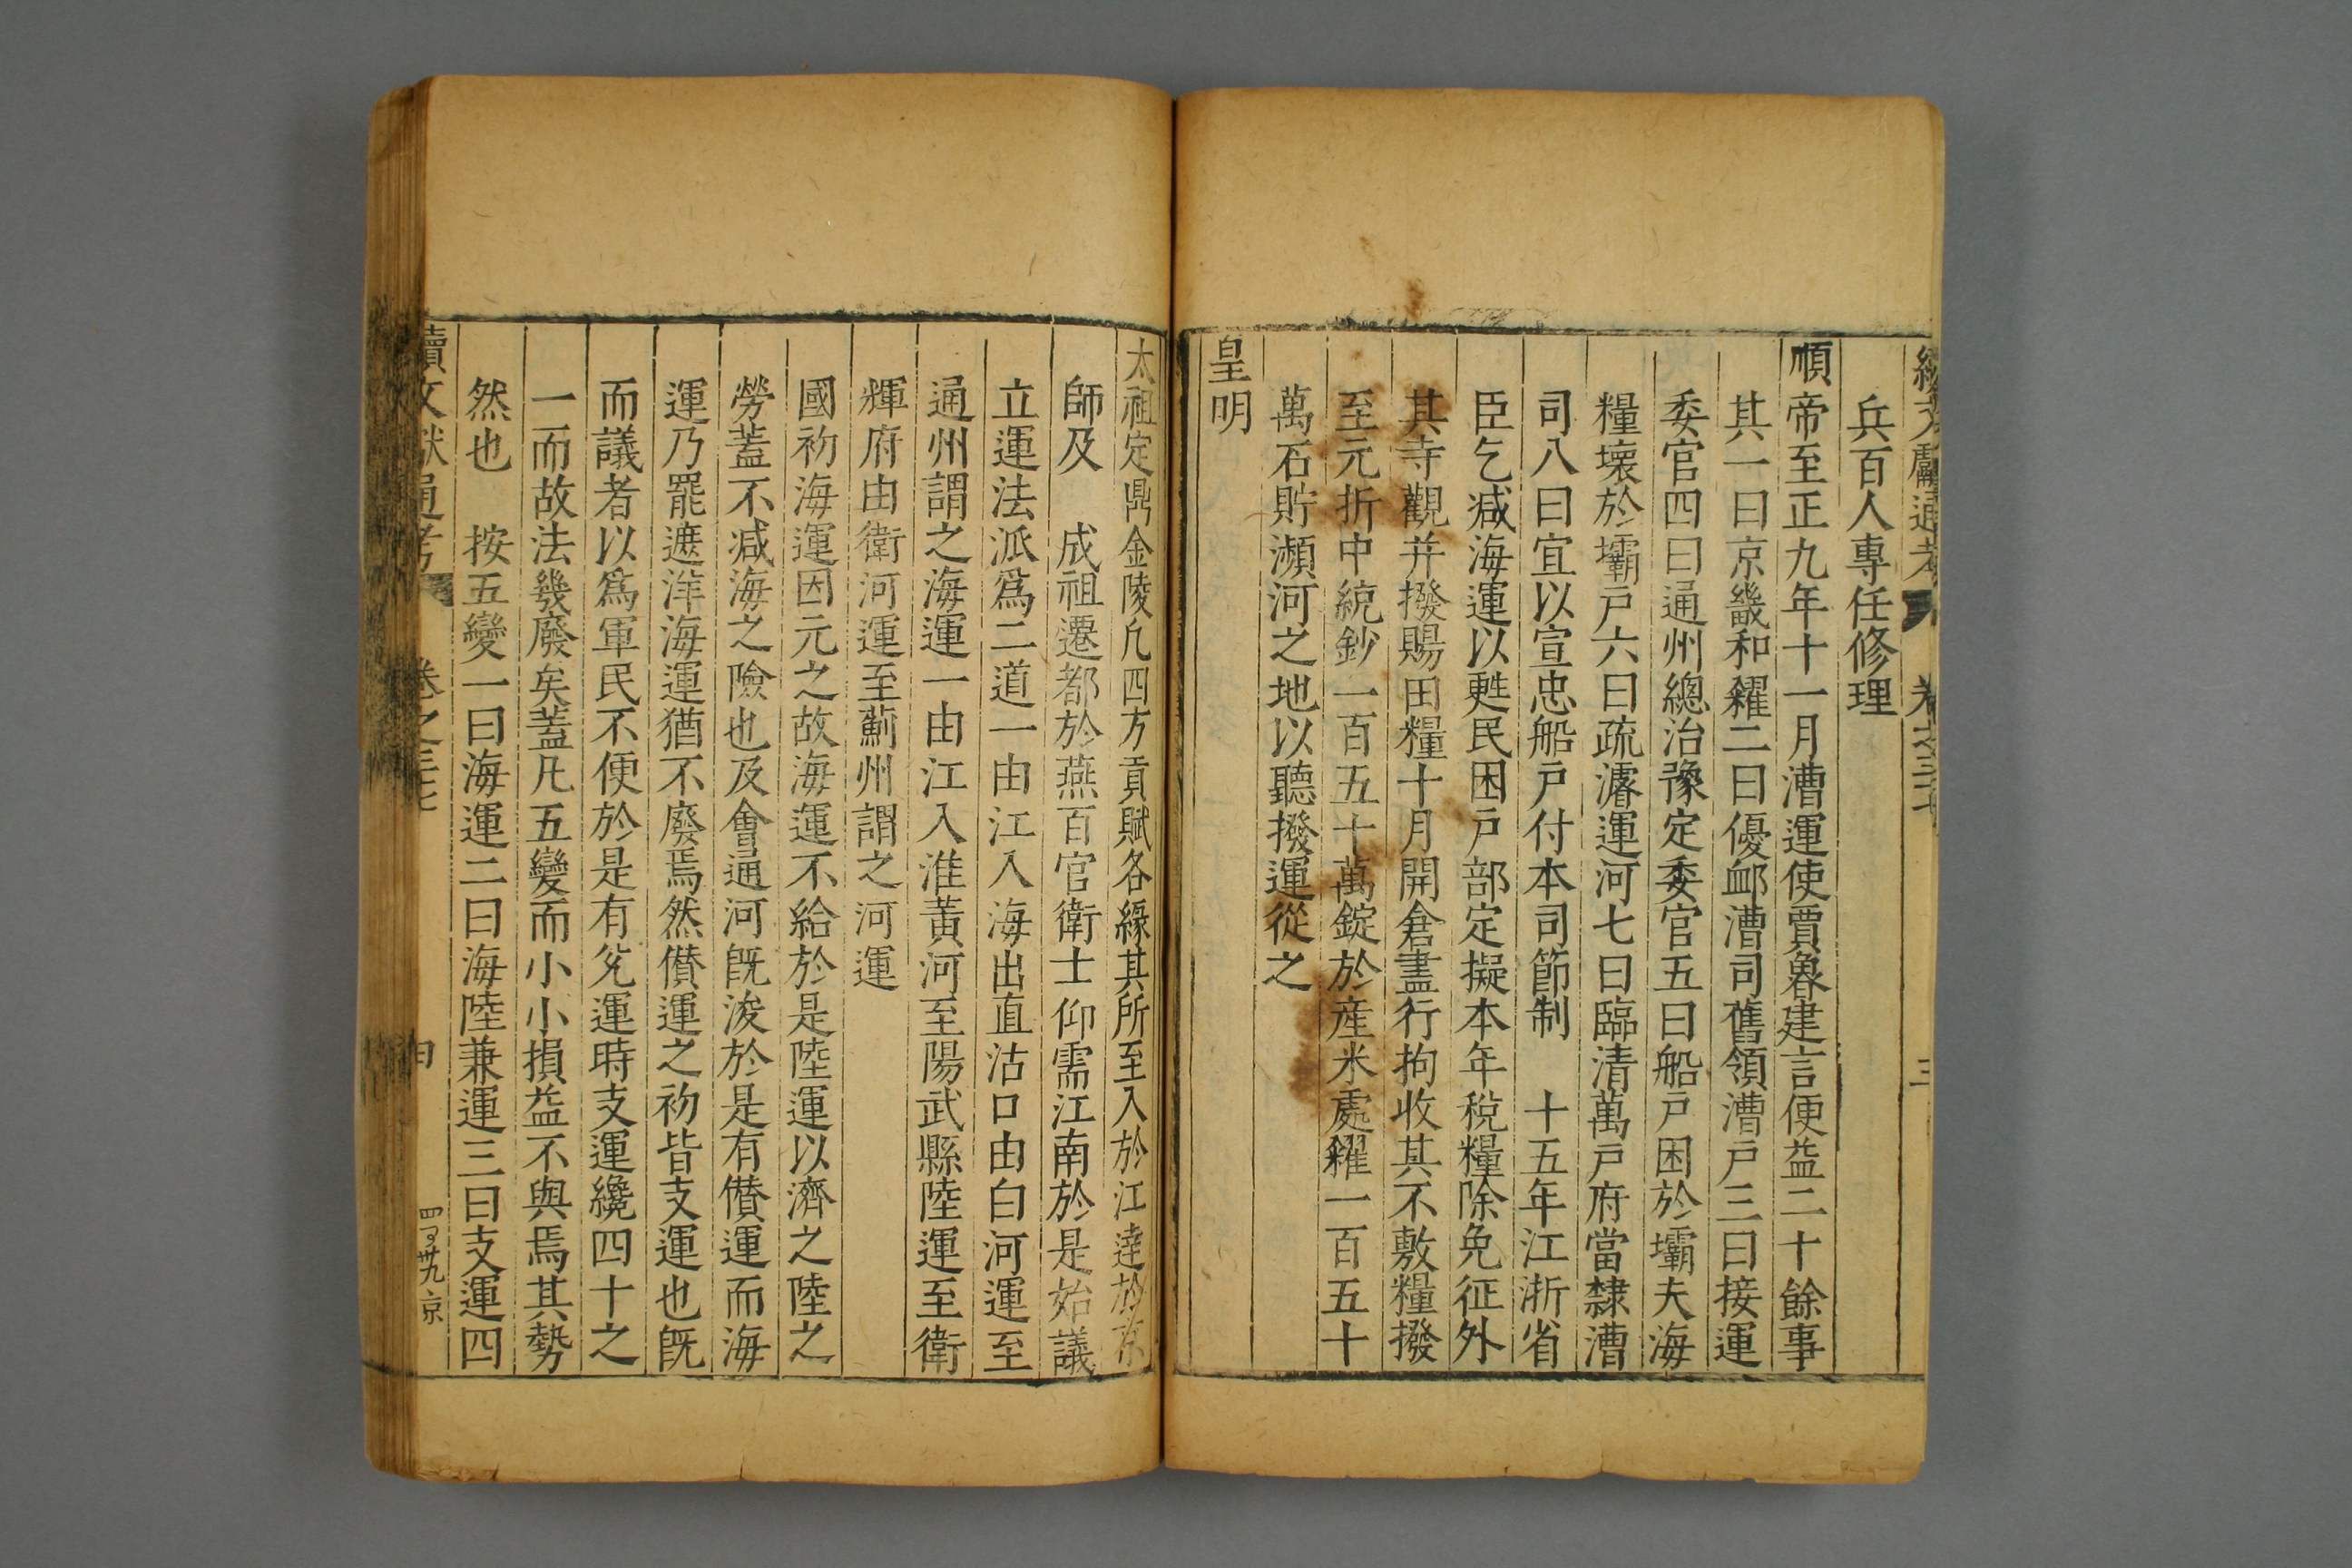 續文獻通考 卷之三十七 三
兵百人專任修理
順帝至正九年十一月漕運使賈魯建言便益二十餘事
其一曰京畿和糴二曰優衈漕司舊領漕戶三曰接運
委官四曰通州總治豫定委官五曰船戶困於壩夫海
糧壞於壩戶六曰疏濬運河七曰臨清萬戶府當隸漕
司八曰宜以宣忠船戶付本司節制　十五年江浙省
臣乞減海運以甦民困戶部定擬本年稅糧除免征外
其寺觀并撥賜田糧十月開倉盡行拘收其不敷糧撥
至元折中統鈔一百五十萬錠於産米處糴一百五十
萬石貯瀕河之地以聽撥運從之
皇明
太祖定鼎金陵凢四方貢賦各緣其所至入於江達於京
師及　成祖遷都於燕百官衛士仰需江南於是始議
立運法派爲二道一由江入海出直沽口由白河運至
通州謂之海運一由江入淮黃河至陽武縣陸運至衛
輝府由衛河運至薊州謂之河運
國初海運因元之故海運不給於是陸運以濟之陸之
勞蓋不减海之險也及會通河旣浚於是有儹運而海
運乃罷遮洋海運猶不廢焉然儹運之初皆支運也旣
而議者以爲軍民不便於是有兊運時支運纔四十之
一而故法幾廢矣蓋凢五變而小小損益不與焉其勢
然也　按五變一曰海運二曰海陸兼運三曰支運四
續文獻通考 卷之三十七